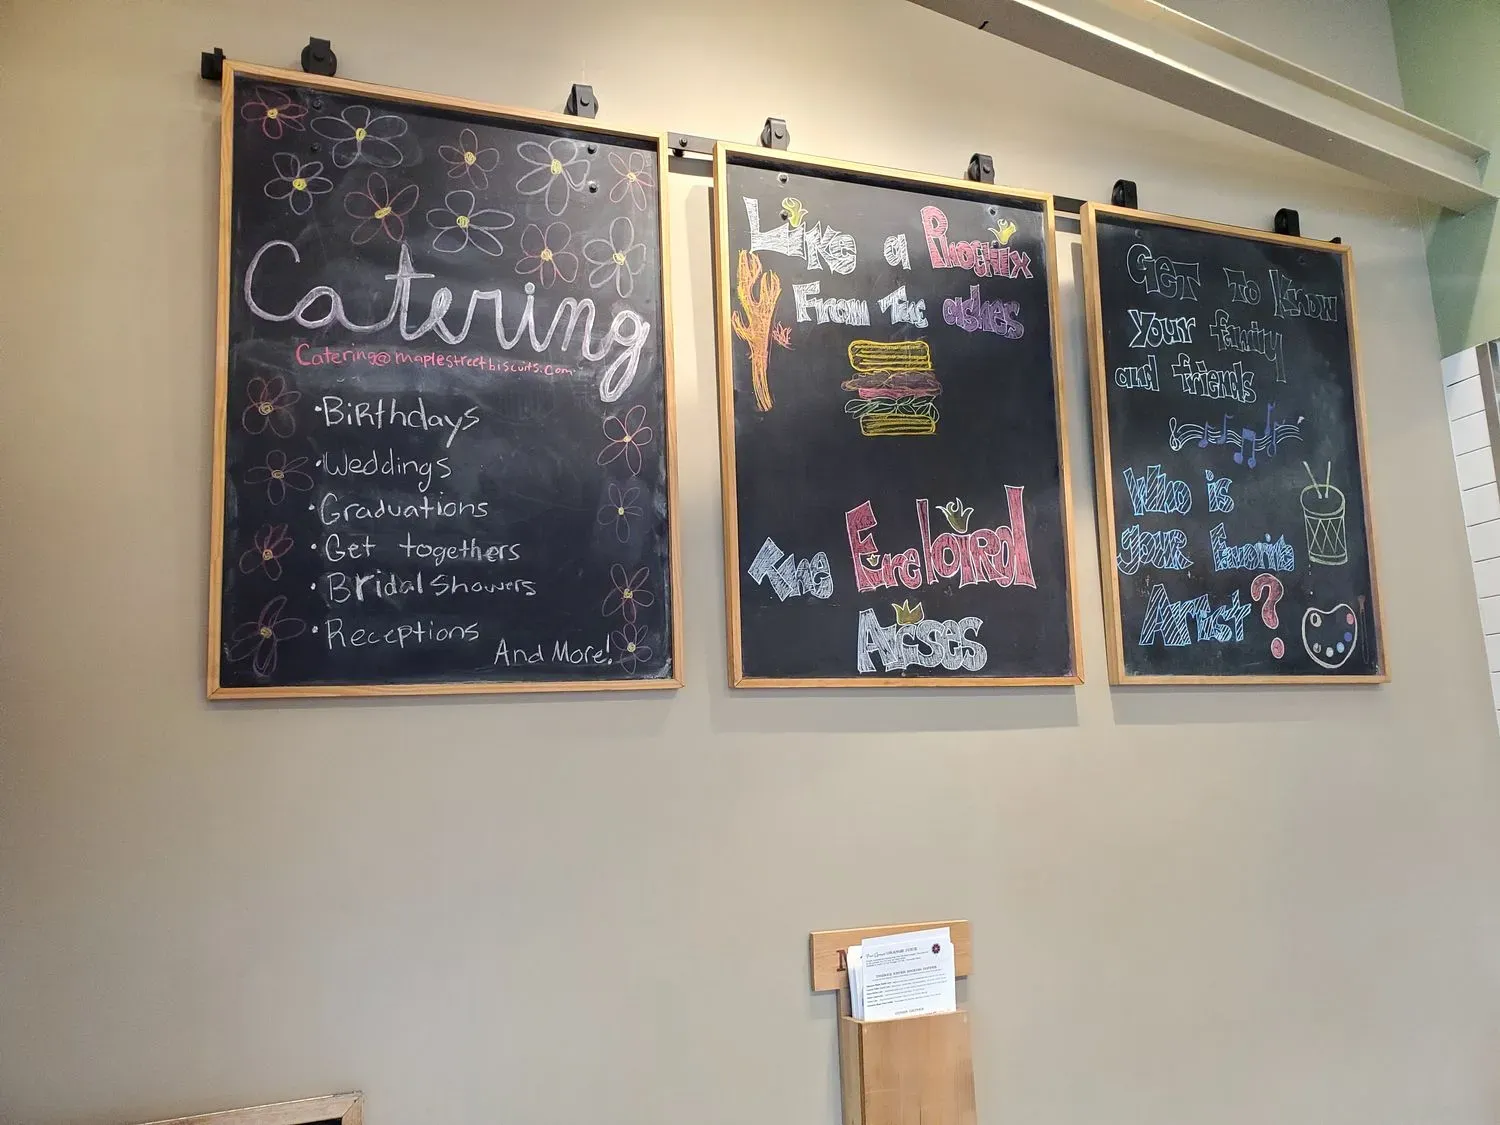 Catering
Catering@maplestreetbiscuits.com
• Birthdays
• Weddings
• Graduations
• Get togethers
• Bridal Showers
• Receptions
And More!
Like a Phoenix
From The ashes
The Firebird
Arises
Get To Know
Your family
and friends
Who is
your favorite
Artist?
M
ORANGE JUICE